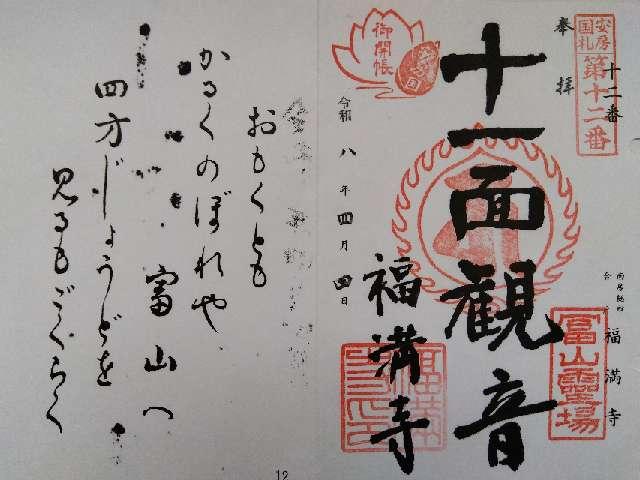 安房
国札
第十二番
十二番
奉拝
十一面観音
福満寺
富山霊場
福満寺
御開帳
令和 八 年 四 月 四 日
おもくとも
かるくのぼれや
富山へ
四方じょうどを
見るもごくらく
12